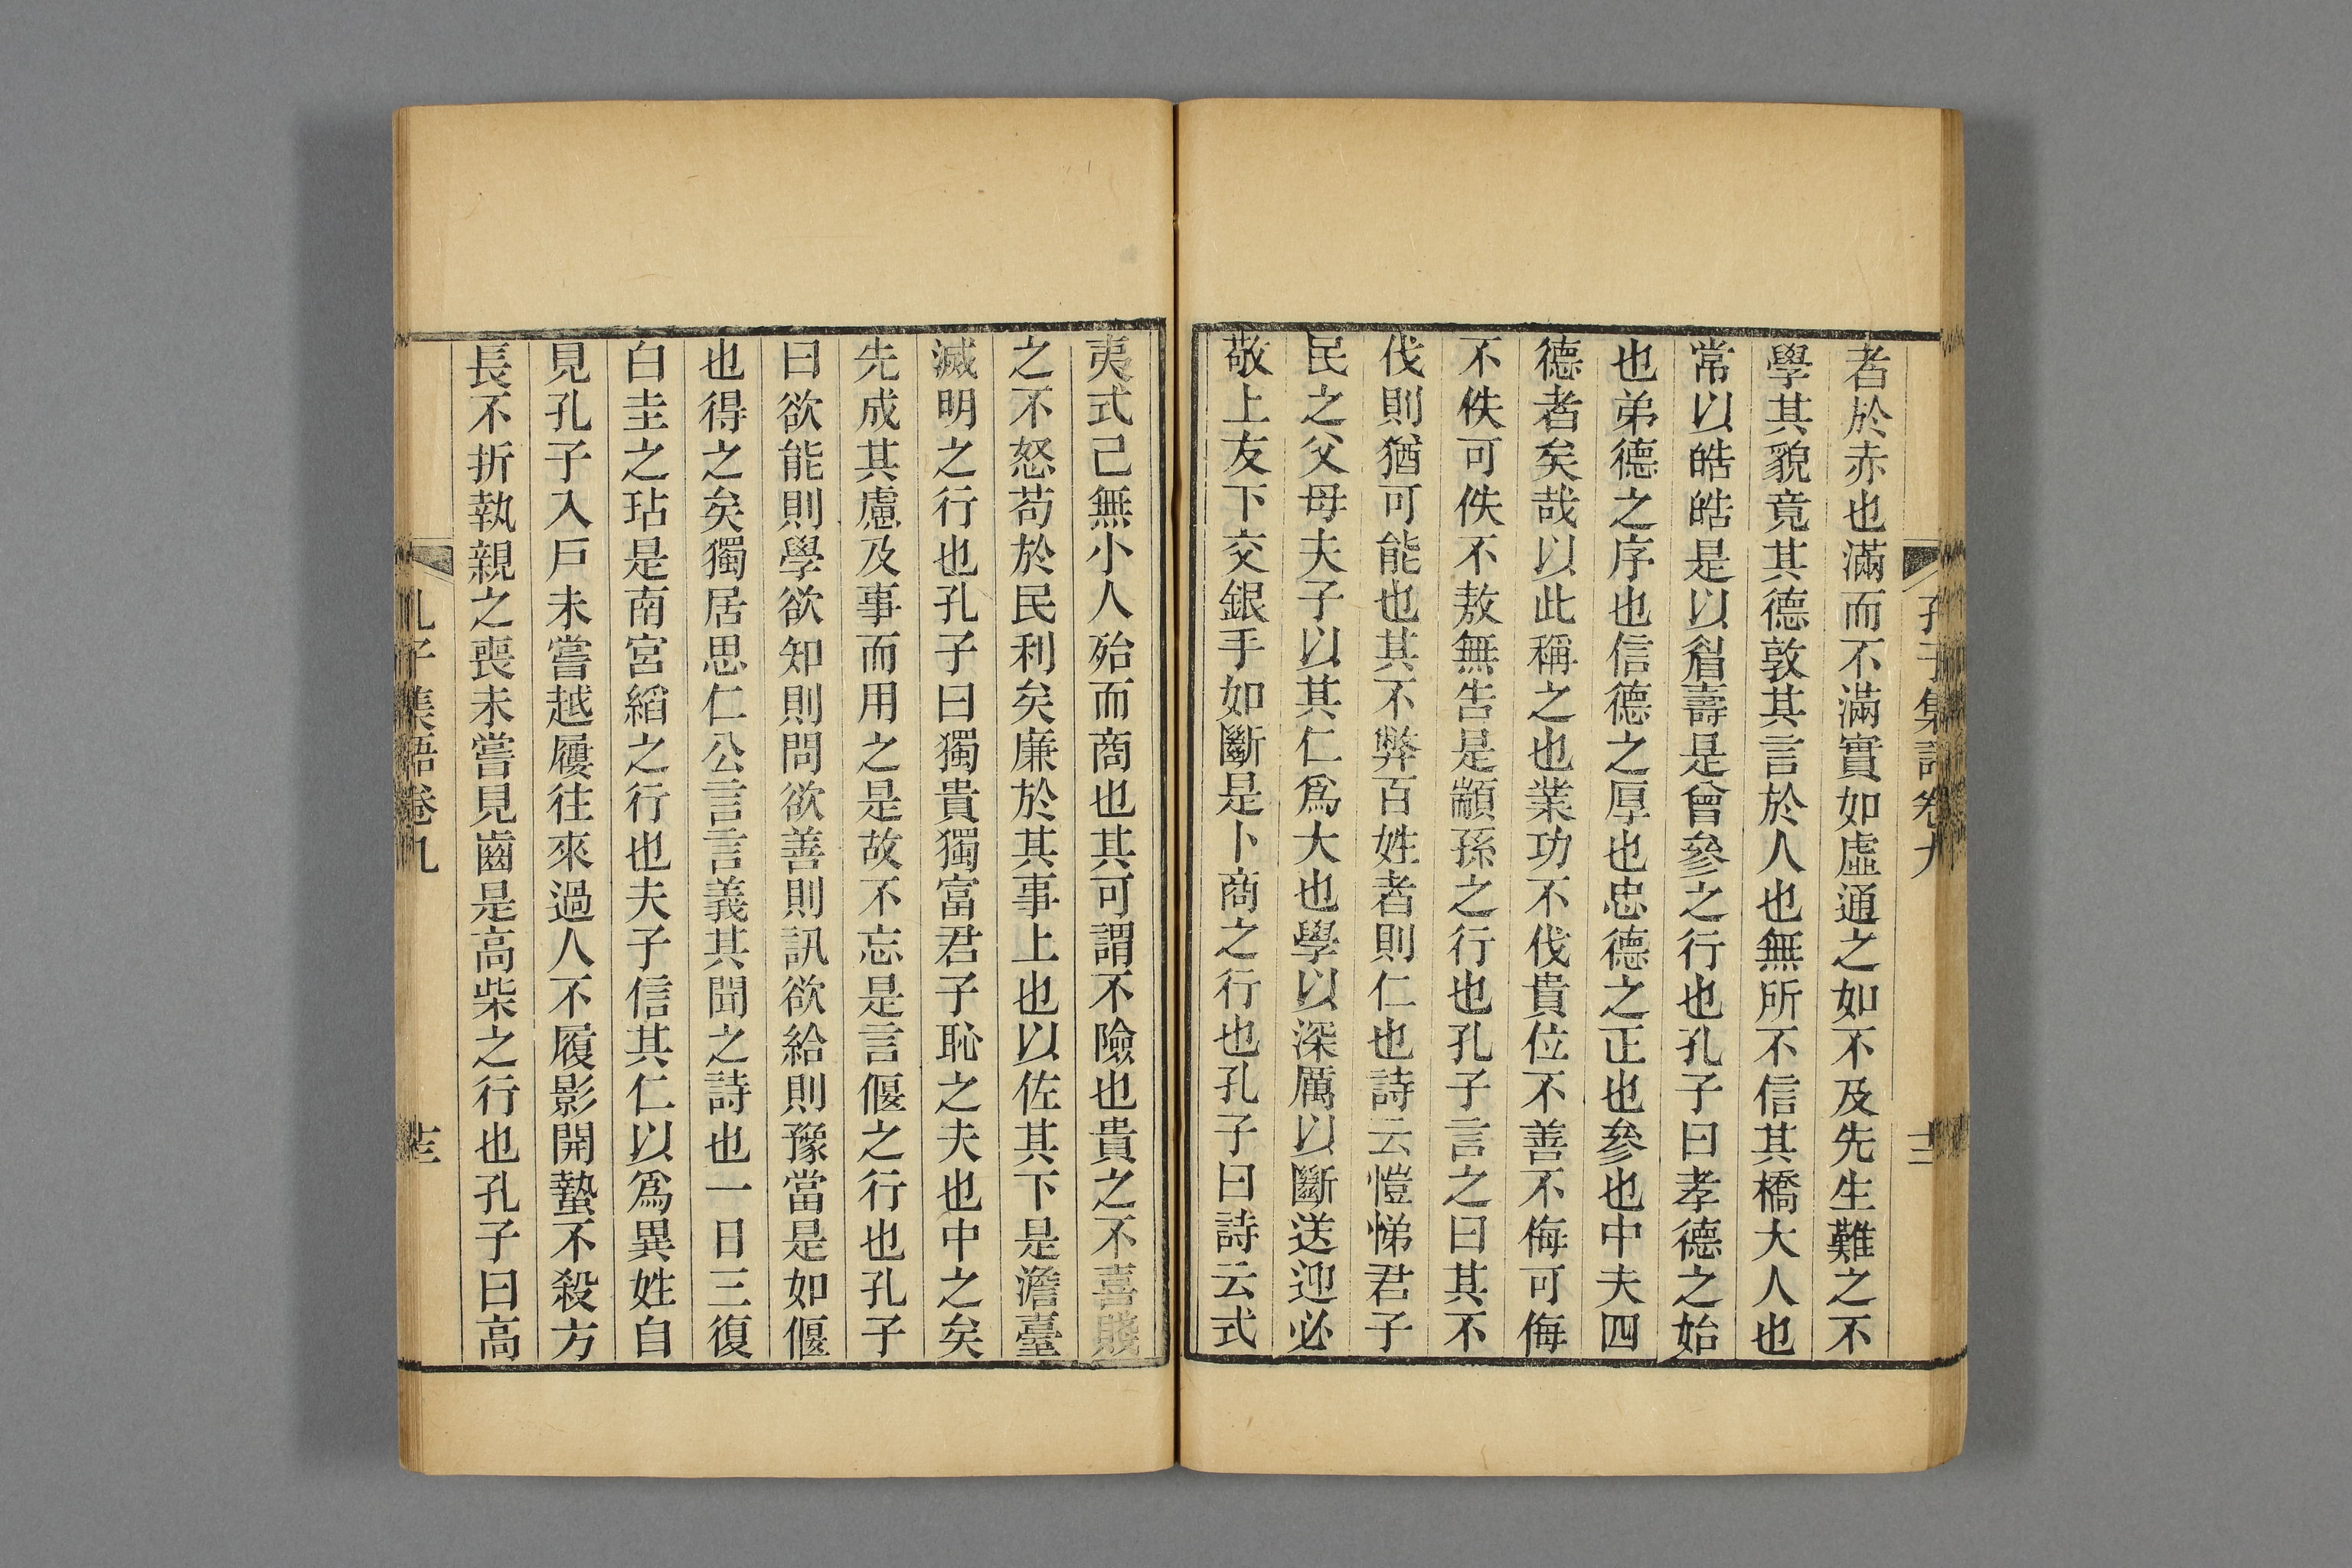 孔子集語卷九
十二
者於赤也滿而不滿實如虛通之如不及先生難之不
學其貌竟其德敦其言於人也無所不信其橋大人也
常以皓皓是以眉壽是曾參之行也孔子曰孝德之始
也弟德之序也信德之厚也忠德之正也參也中夫四
德者矣哉以此稱之也業功不伐貴位不善不侮可侮
不佚可佚不敖無告是顓孫之行也孔子言之曰其不
伐則猶可能也其不弊百姓者則仁也詩云愷悌君子
民之父母夫子以其仁爲大也學以深厲以斷送迎必
敬上友下交銀手如斷是卜商之行也孔子曰詩云式
夷式己無小人殆而商也其可謂不險也貴之不喜賤
之不怒苟於民利矣廉於其事上也以佐其下是澹臺
滅明之行也孔子曰獨貴獨富君子恥之夫也中之矣
先成其慮及事而用之是故不忘是言偃之行也孔子
曰欲能則學欲知則問欲善則訊欲給則豫當是如偃
也得之矣獨居思仁公言言義其聞之詩也一日三復
白圭之玷是南宮縚之行也夫子信其仁以爲異姓自
見孔子入戸未嘗越屨往來過人不履影開蟄不殺方
長不折執親之喪未嘗見齒是高柴之行也孔子曰高
孔子集語卷九
十三